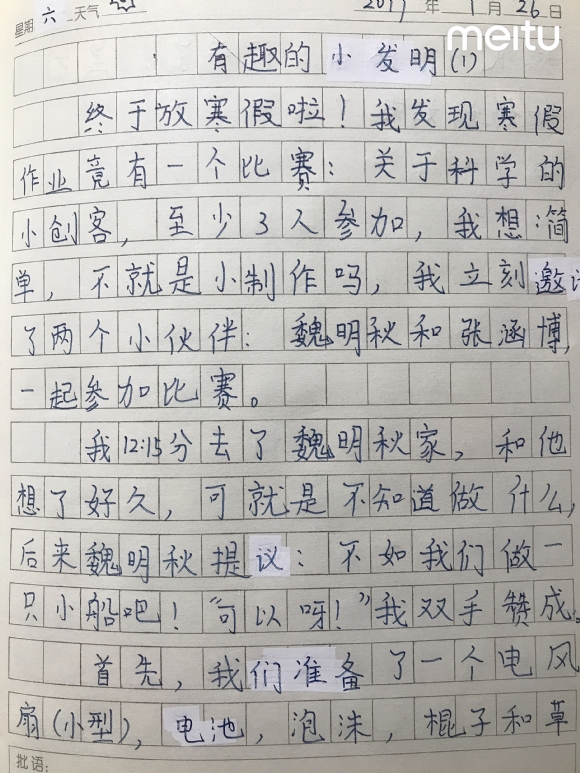 星期 六 天气 2017 年 1 月 26 日
meitu
有趣的小发明(1)
终于放寒假啦!我发现寒假
作业竟有一个比赛:关于科学的
小创客,至少3人参加,我想:简
单,不就是小制作吗,我立刻邀
了两个小伙伴:魏明秋和张涵博,
一起参加比赛。
我12:15分去了魏明秋家,和他
想了好久,可就是不知道做什么,
后来魏明秋提议:不如我们做一
只小船吧!“可以呀!”我双手赞成。
首先,我们准备了一个电风
扇(小型),电池,泡沫,棍子和草
批语: